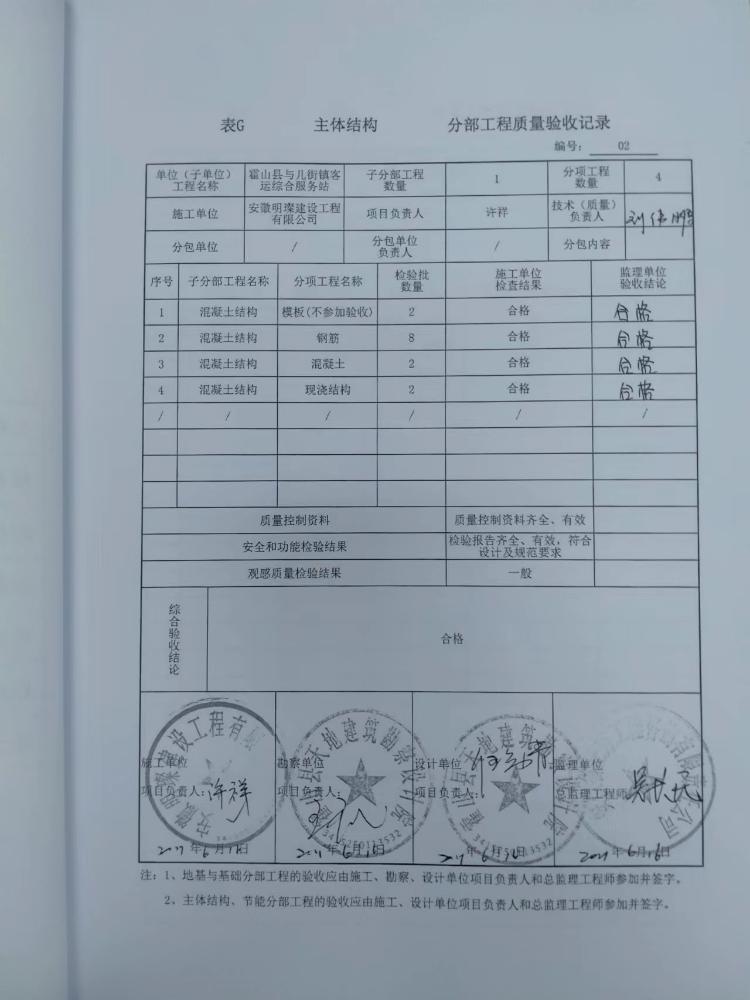 表G 主体结构 分部工程质量验收记录
编号: 02
单位(子单位)工程名称 霍山县与儿街镇客运综合服务站 子分部工程数量 1 分项工程数量 4
施工单位 安徽明璨建设工程有限公司 项目负责人 许祥 技术(质量)负责人
分包单位 / 分包单位负责人 / 分包内容
序号 子分部工程名称 分项工程名称 检验批数量 施工单位检查结果 监理单位验收结论
1 混凝土结构 模板(不参加验收) 2 合格 合格
2 混凝土结构 钢筋 8 合格 合格
3 混凝土结构 混凝土 2 合格 合格
4 混凝土结构 现浇结构 2 合格 合格
/ / / / / /
质量控制资料 质量控制资料齐全、有效
安全和功能检验结果 检验报告齐全、有效,符合设计及规范要求
观感质量检验结果 一般
综合验收结论 合格
施工单位 勘察单位 设计单位 监理单位
项目负责人: 许祥 项目负责人: 项目负责人: 总监理工程师
年6月 日 年6月16日 年6月16日 2021年6月16日
安徽明璨建设工程有限
霍山县天地建筑勘察设计院
3415250113532
霍山县天地建筑勘察设计院
注:1、地基与基础分部工程的验收应由施工、勘察、设计单位项目负责人和总监理工程师参加并签字。
2、主体结构、节能分部工程的验收应由施工、设计单位项目负责人和总监理工程师参加并签字。